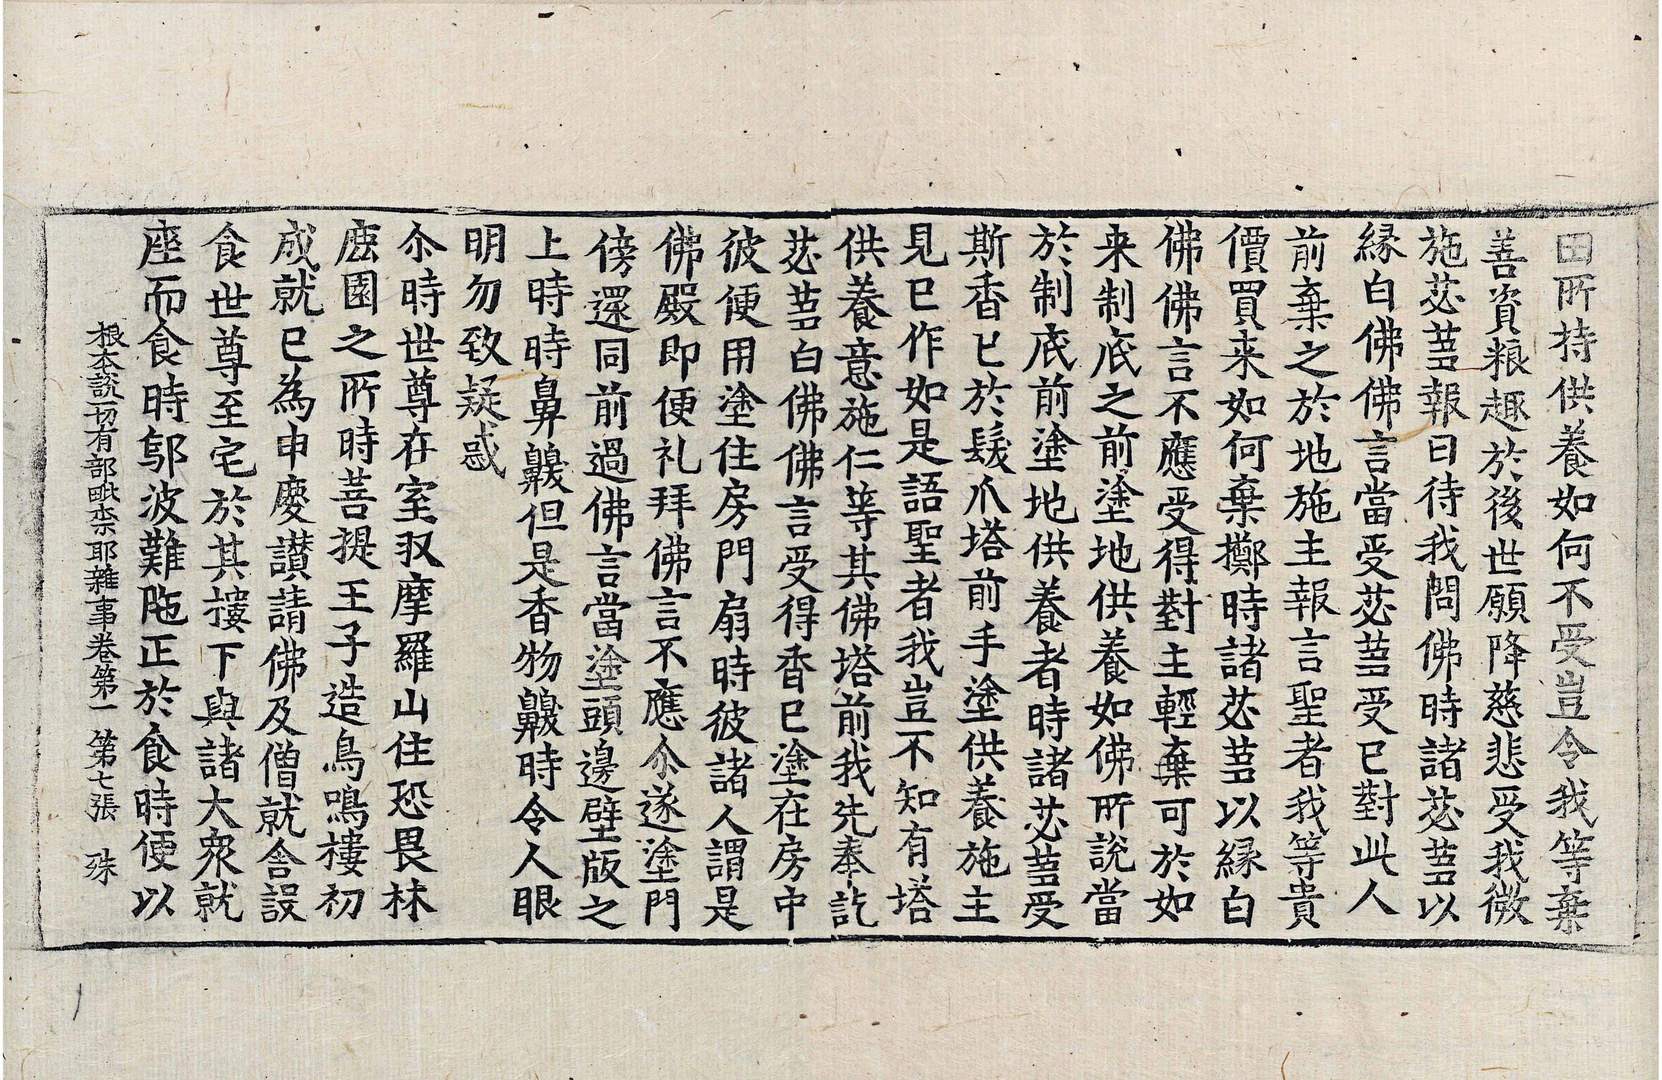 田所持供養如何不受豈令我等棄
善資粮趣於後世願降慈悲受我微
施苾芻報曰待我問佛時諸苾芻以
縁白佛佛言當受苾芻受已對此人
前棄之於地施主報言聖者我等貴
價買来如何棄擲時諸苾芻以縁白
佛佛言不應受得對主輕棄可於如
来制底之前塗地供養如佛所說當
於制底前塗地供養者時諸苾芻受
斯香已於髮爪塔前手塗供養施主
見已作如是語聖者我豈不知有塔
供養意施仁等其佛塔前我先奉訖
苾芻白佛佛言受得香已塗在房中
彼便用塗住房門扇時彼諸人謂是
佛殿即便礼拜佛言不應尒遂塗門
傍還同前過佛言當塗頭邊壁版之
上時時鼻齅但是香物齅時令人眼
明勿致疑惑
尒時世尊在室収摩羅山住恐畏林
鹿園之所時菩提王子造鳥鳴樓初
成就已為申慶讃請佛及僧就舍設
食世尊至宅於其樓下與諸大衆就
座而食時鄔波難陁正於食時便以
根本說一切有部毗柰耶雜事卷第一　第七張　殊